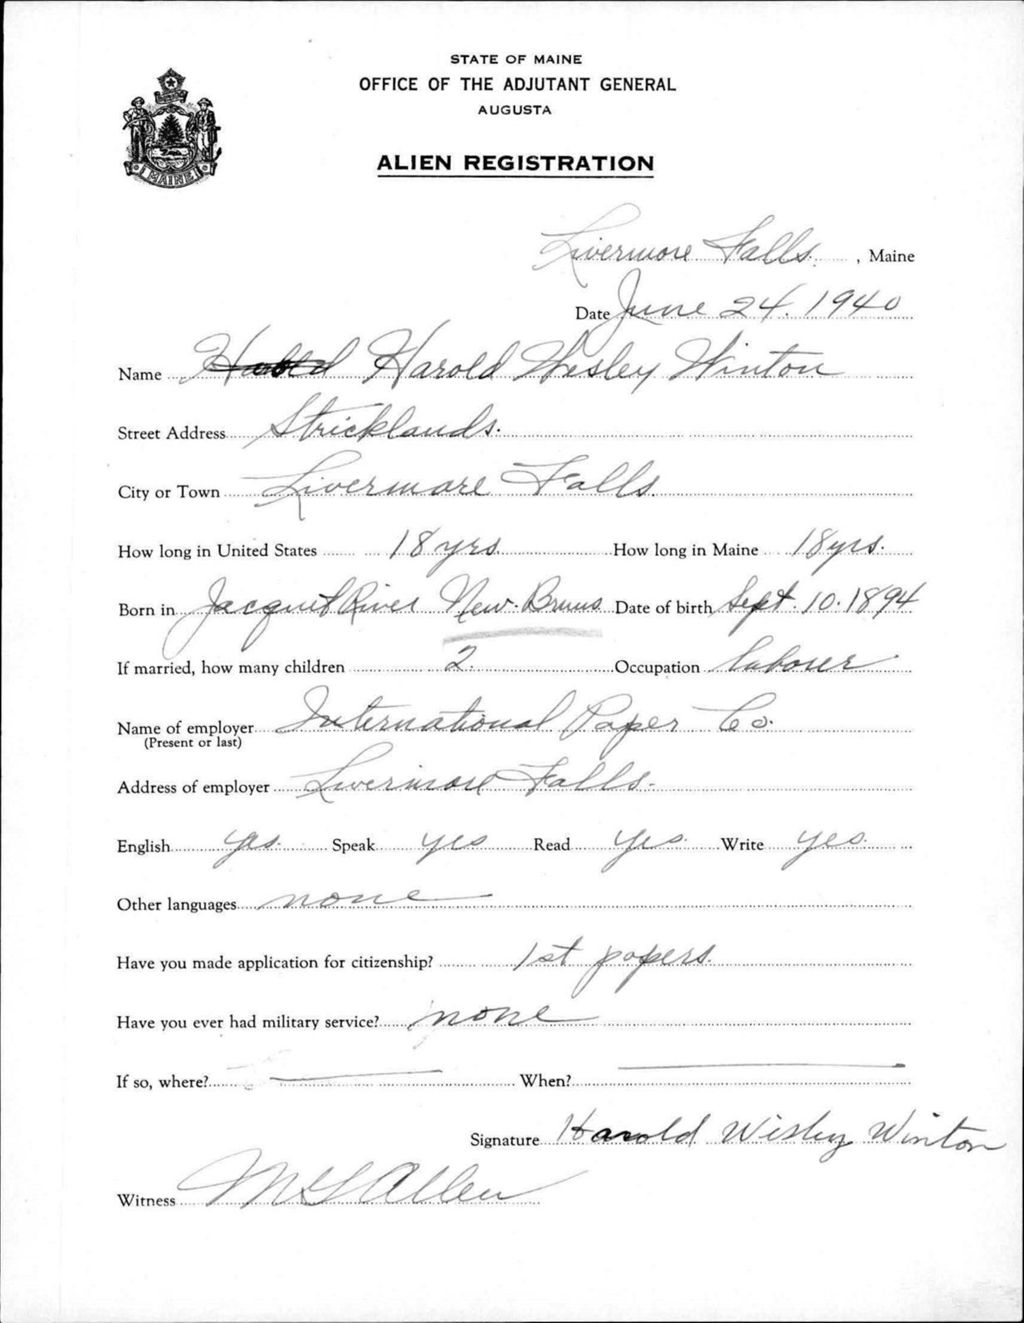 STATE OF MAINE
OFFICE OF THE ADJUTANT GENERAL
AUGUSTA
ALIEN REGISTRATION
MAINE
Livermore Falls. , Maine
Date June 24. 1940
Name Harold Wesley Winton
Street Address Stricklands.
City or Town Livermore Falls.
How long in United States 18 yrs. How long in Maine 18 yrs.
Born in Jacquet River New-Bruns. Date of birth Sept. 10. 1894
If married, how many children 2. Occupation laborer
Name of employer International Paper Co.
(Present or last)
Address of employer Livermore Falls.
English yes. Speak yes Read yes. Write yes.
Other languages none
Have you made application for citizenship? 1st papers.
Have you ever had military service? none
If so, where? When?
Signature Harold Wisley Winton
Witness Allen